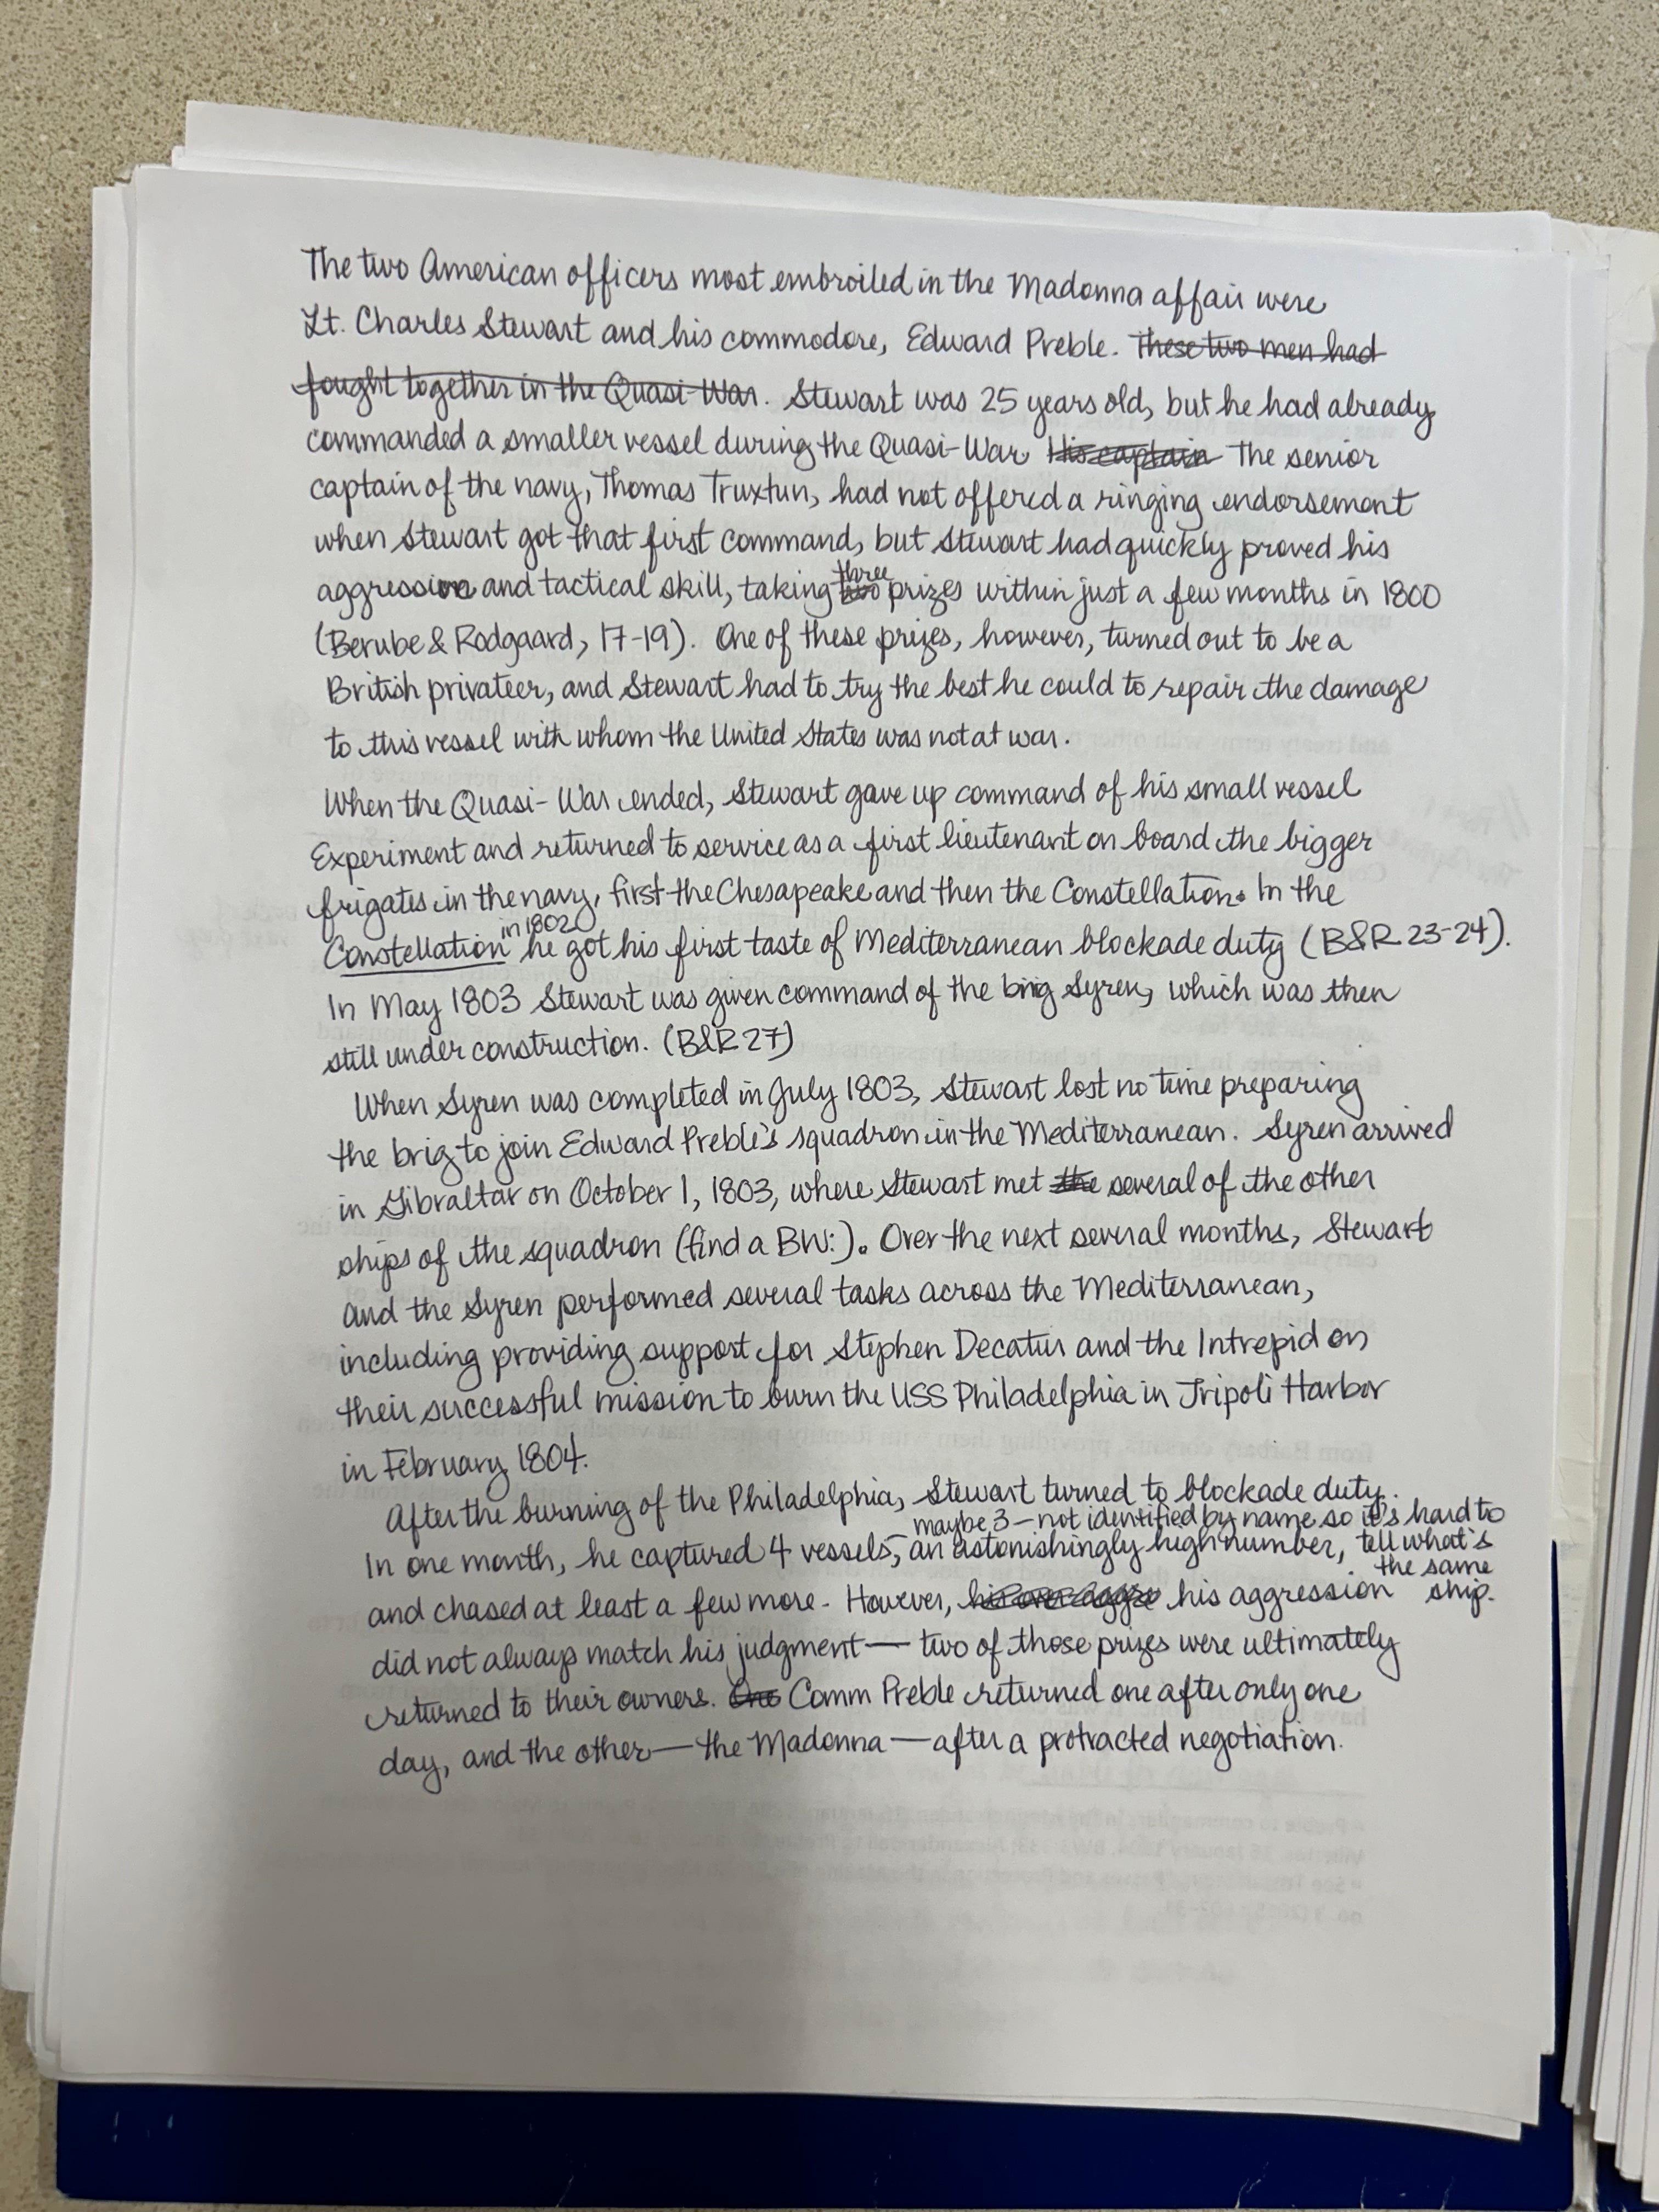 The two American officers most embroiled in the Madonna affair were
Lt. Charles Stewart and his commodore, Edward Preble. These two men had
fought together in the Quasi-War. Stewart was 25 years old, but he had already
commanded a smaller vessel during the Quasi-War. His captain The senior
captain of the navy, Thomas Truxtun, had not offered a ringing endorsement
when Stewart got that first command, but Stewart had quickly proved his
three
aggression and tactical skill, taking two prizes within just a few months in 1800
(Berube & Rodgaard, 17-19). One of these prizes, however, turned out to be a
British privateer, and Stewart had to try the best he could to repair the damage
to this vessel with whom the United States was not at war.
When the Quasi-War ended, Stewart gave up command of his small vessel
Experiment and returned to service as a first lieutenant on board the bigger
frigates in the navy, first the Chesapeake and then the Constellation. In the
in 1802
Constellation he got his first taste of Mediterranean blockade duty (B&R 23-24).
In May 1803 Stewart was given command of the brig Syren, which was then
still under construction. (B&R 27)
When Syren was completed in July 1803, Stewart lost no time preparing
the brig to join Edward Preble's squadron in the Mediterranean. Syren arrived
in Gibraltar on October 1, 1803, where Stewart met the several of the other
ships of the squadron (find a BW:). Over the next several months, Stewart
and the Syren performed several tasks across the Mediterranean,
including providing support for Stephen Decatur and the Intrepid on
their successful mission to burn the USS Philadelphia in Tripoli Harbor
in February 1804.
After the burning of the Philadelphia, Stewart turned to blockade duty.
maybe 3 — not identified by name so it's hard to
In one month, he captured 4 vessels, an astonishingly high number, tell what's
the same
and chased at least a few more. However, his over aggre his aggression ship.
did not always match his judgment — two of those prizes were ultimately
returned to their owners. One Comm Preble returned one after only one
day, and the other — the Madonna — after a protracted negotiation.